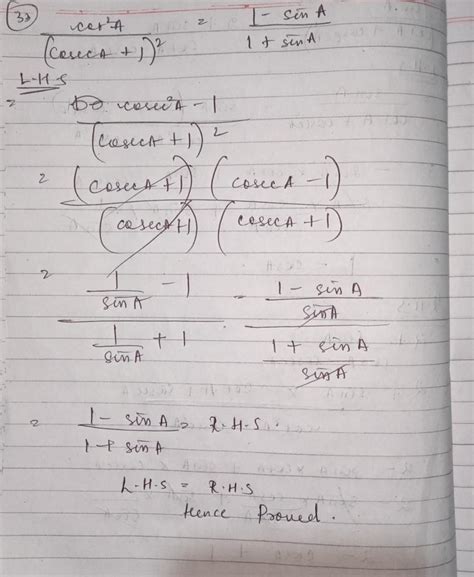 33) cot²A / (cosecA + 1)² = 1 - sinA / 1 + sinA
L.H.S
= cosec²A - 1 / (cosecA + 1)²
= (cosecA + 1) (cosecA - 1) / (cosecA + 1) (cosecA + 1)
= 1/sinA - 1 / 1/sinA + 1 = 1 - sinA/sinA / 1 + sinA/sinA
= 1 - sinA / 1 + sinA = R.H.S.
L.H.S = R.H.S
Hence Proved.